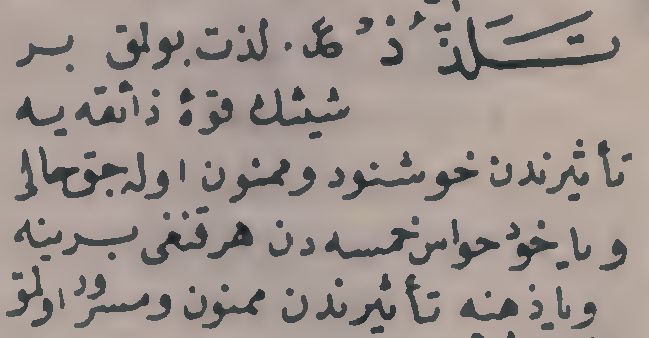 تَلَذُّذْ ع. لذت بولمق بر
شیئك قوۀ ذائقه یه
تأثیرندن خوشنود وممنون اوله جق حالی
ویاخود حواس خمسه دن هرقنغی برینه
ویاذهنه تأثیرندن ممنون ومسرور اولمق